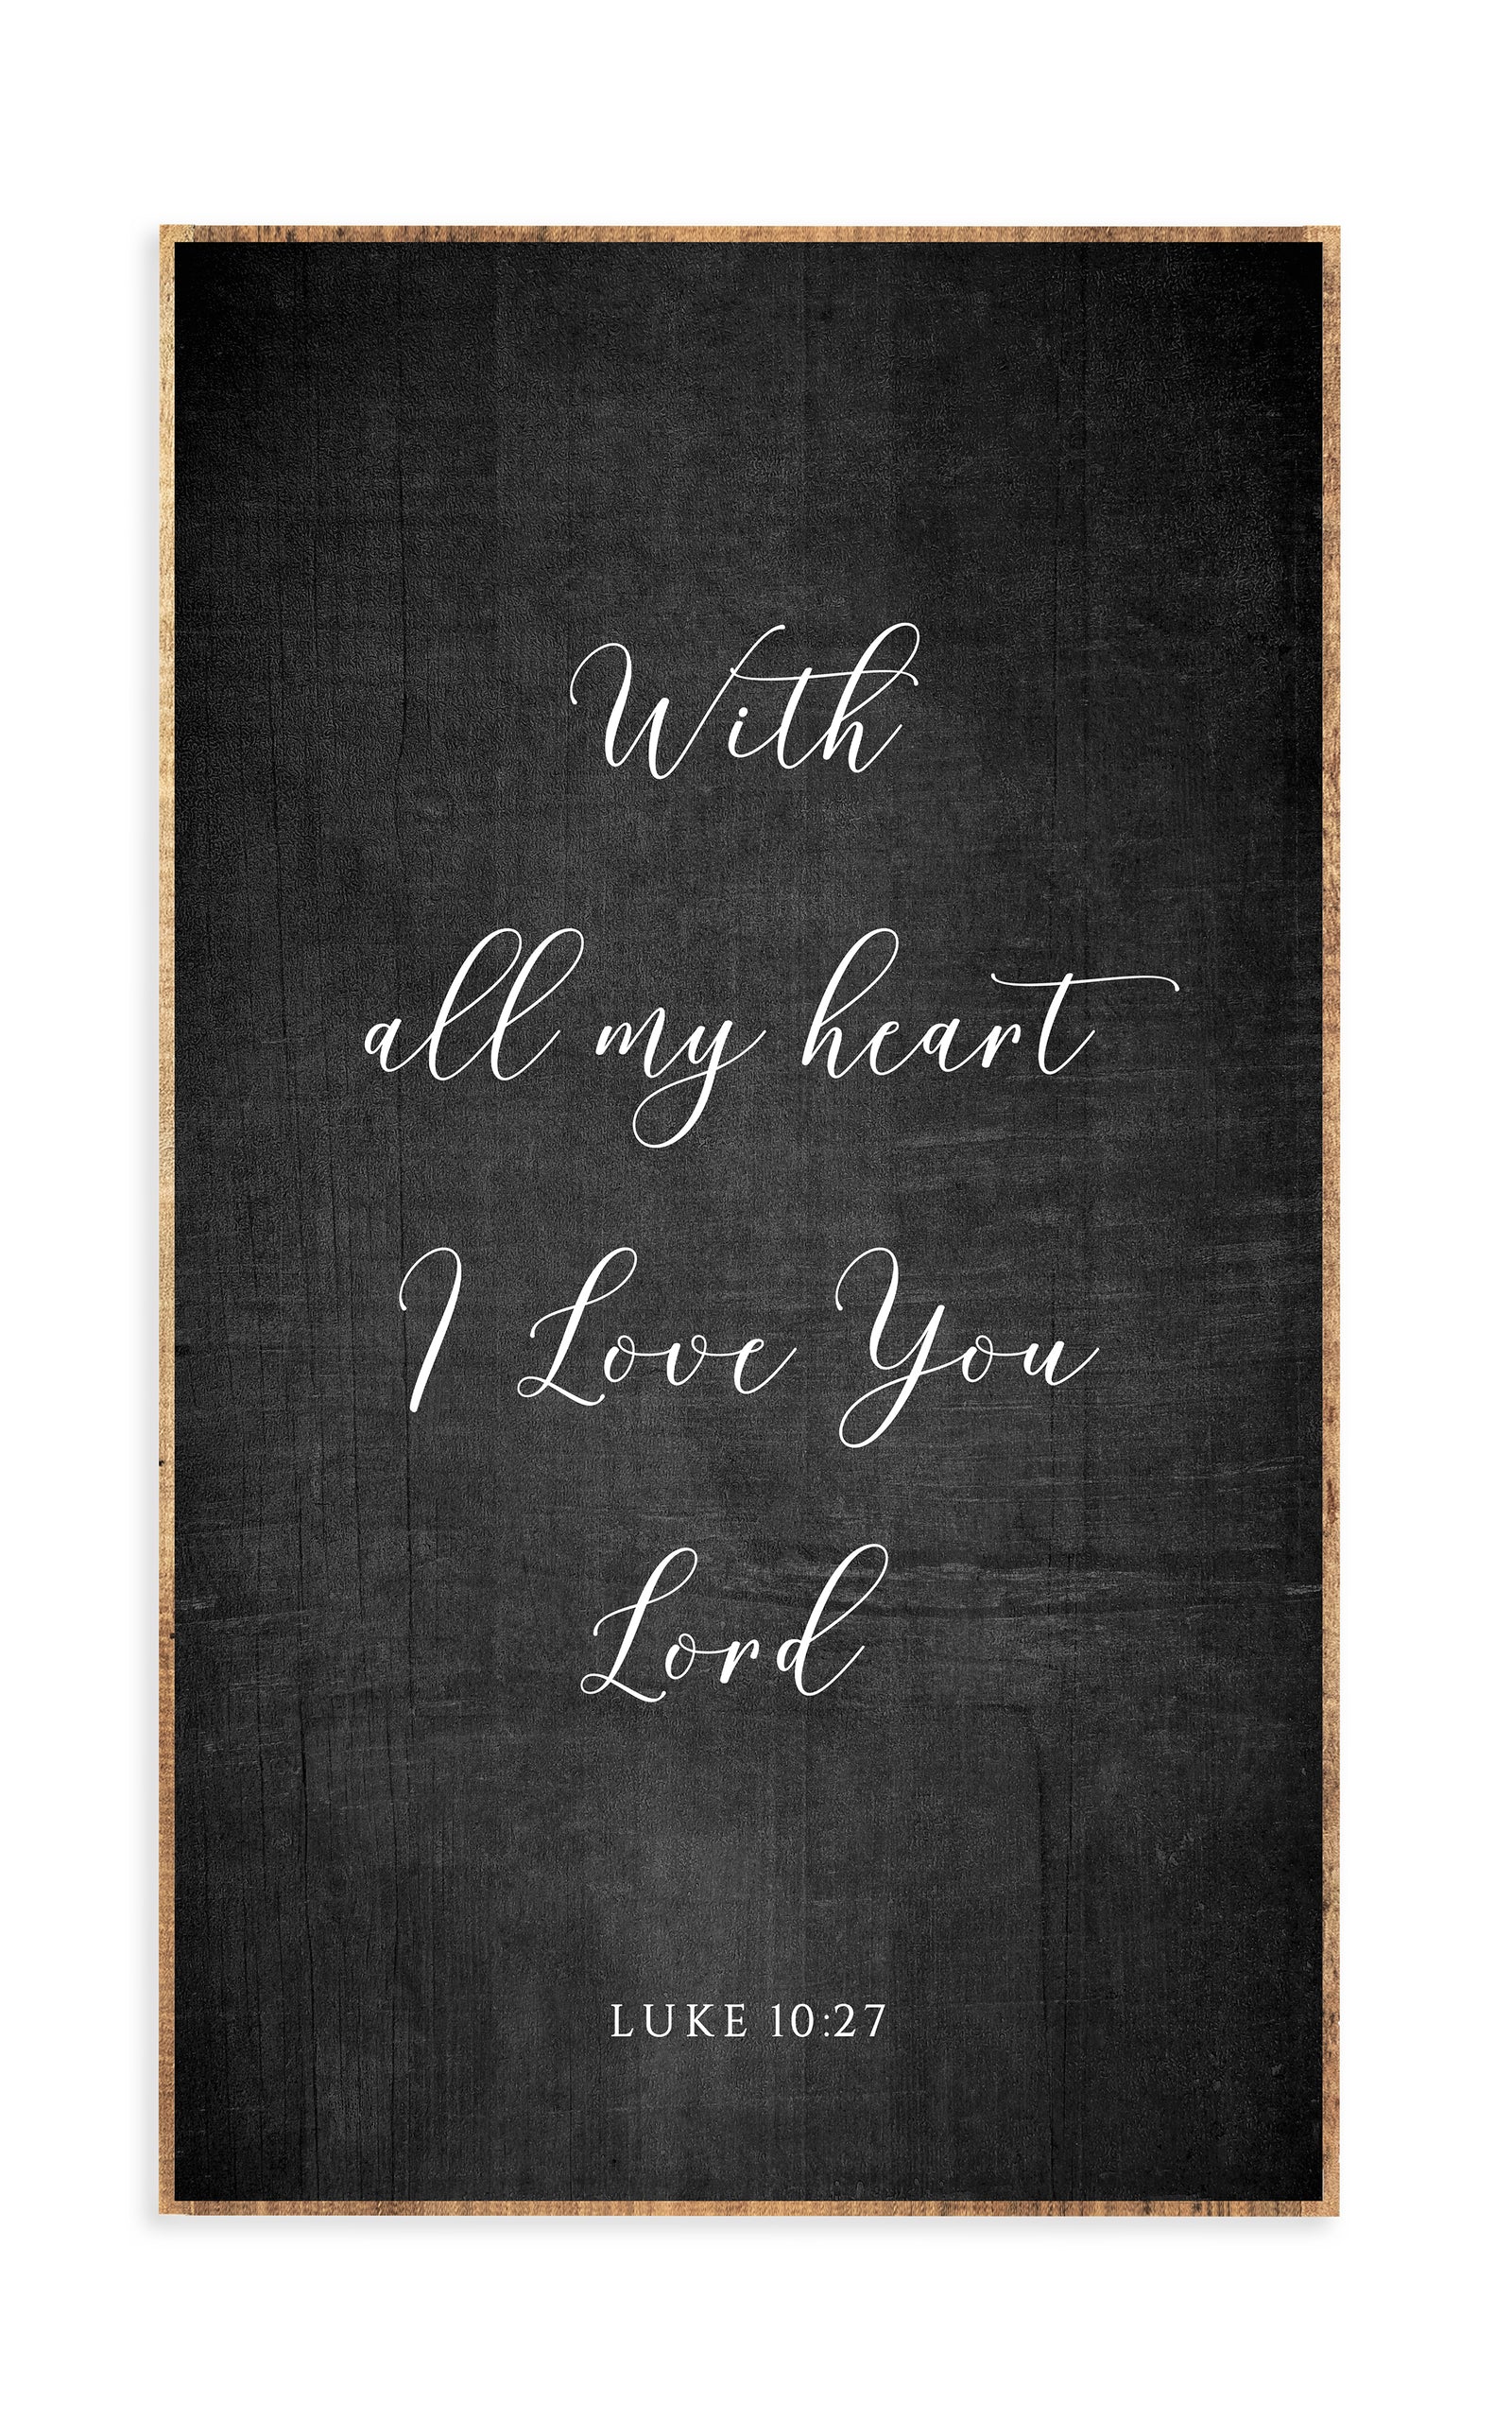 With
all my heart
I Love You
Lord
LUKE 10:27